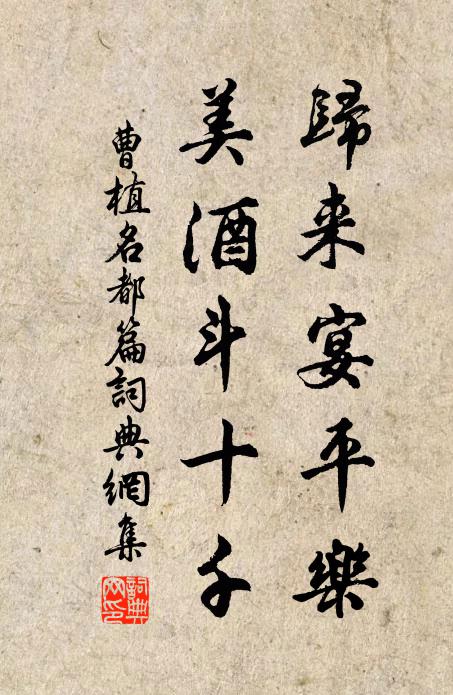 歸来宴平樂
美酒斗十千
曹植名都篇詞典網集
詞典網印